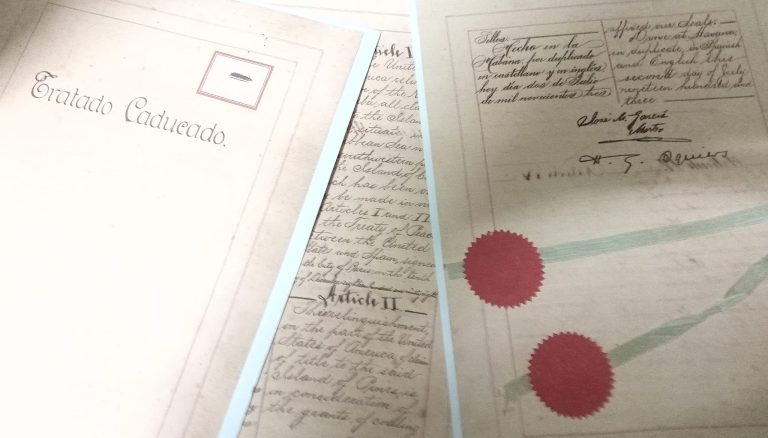 Tratado Caducado.
Article I
the Unite
of the
all cla
the Island
situate in
bbean Sea n
outhwestern p
the Island of
ich has been
be made in
Articles I and II
the Treaty of Peac
between the United
State and Spain, signe
the City of Paris on the tenth
Article II
This relinquishment,
on the part of the United
States of America, of claim
of title to the said
Island of Pines, is
in consideration of
the grants of coaling
Sellos.
Hecho en la
Habana, por duplicado
en castellano y en inglés
hoy día dos de Julio
de mil novecientos tres
affixed our seals.
Done at Havana,
in duplicate, in Spanish
and English this
second day of July
nineteen hundred and
three
José M. García
Montes
H. G. Squiers